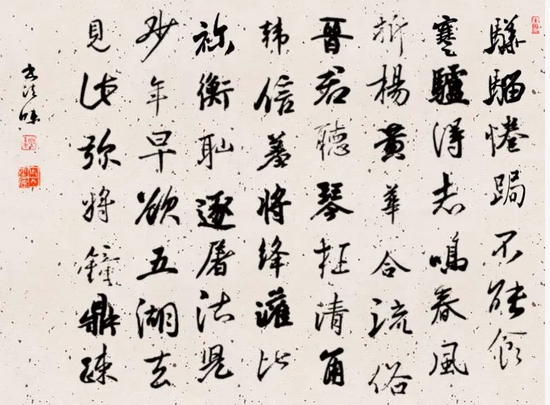 驊騮惓跼不能食
蹇驢得志鳴春風
折楊黃華合流俗
晉君聽琴枉清角
韓信羞將絳灌比
祢衡恥逐屠沽兒
妙年早欲五湖去
見此彌將鐘鼎疎